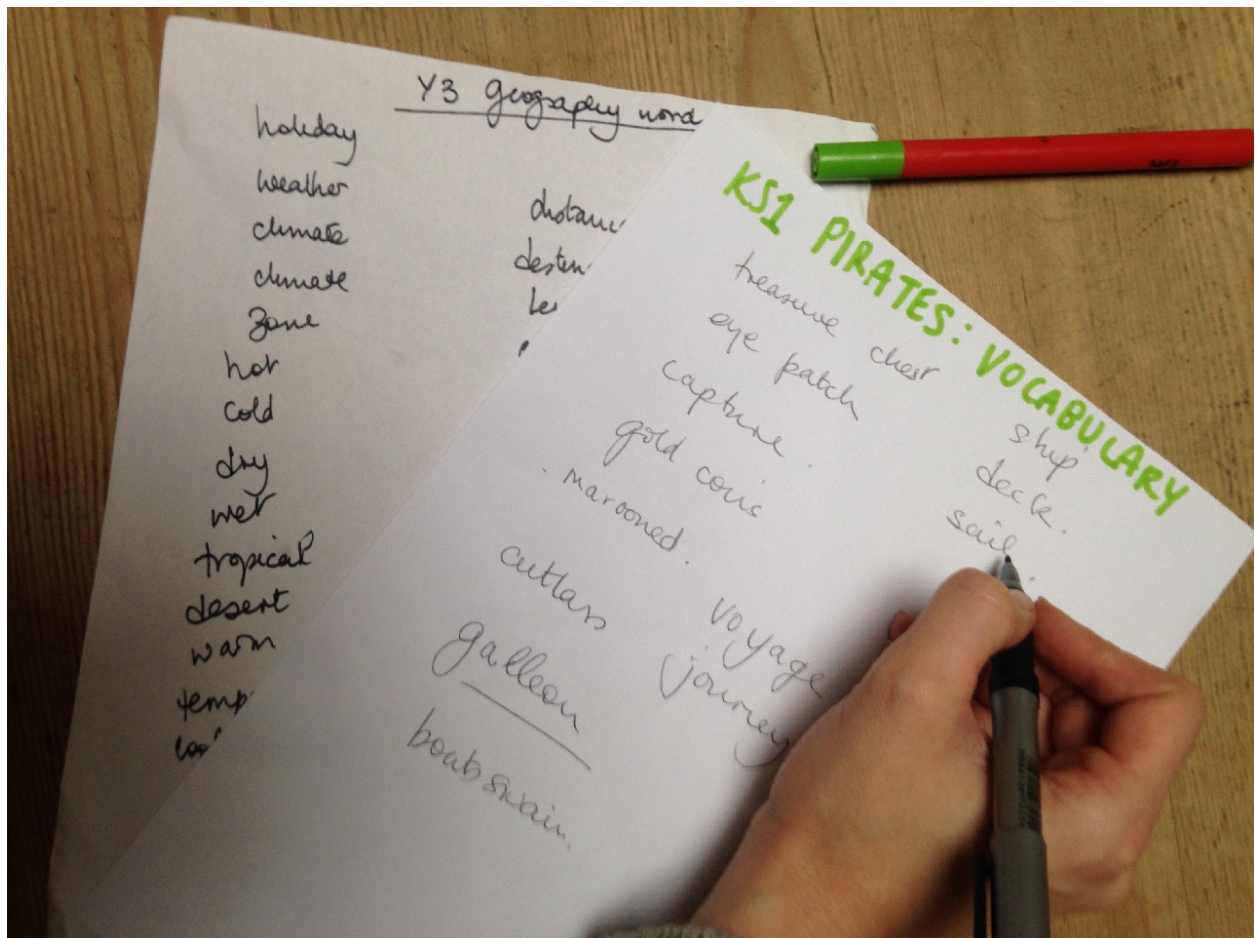 Y3 Geography word
holiday
weather
climate
climate
zone
hot
cold
dry
wet
tropical
desert
warm
temp
distanc
destin
KS1 PIRATES: VOCABULARY
treasure chest
eye patch
capture.
gold coins
marooned.
cutlass
galleon
boatswain.
voyage
journey
ship
deck.
sail